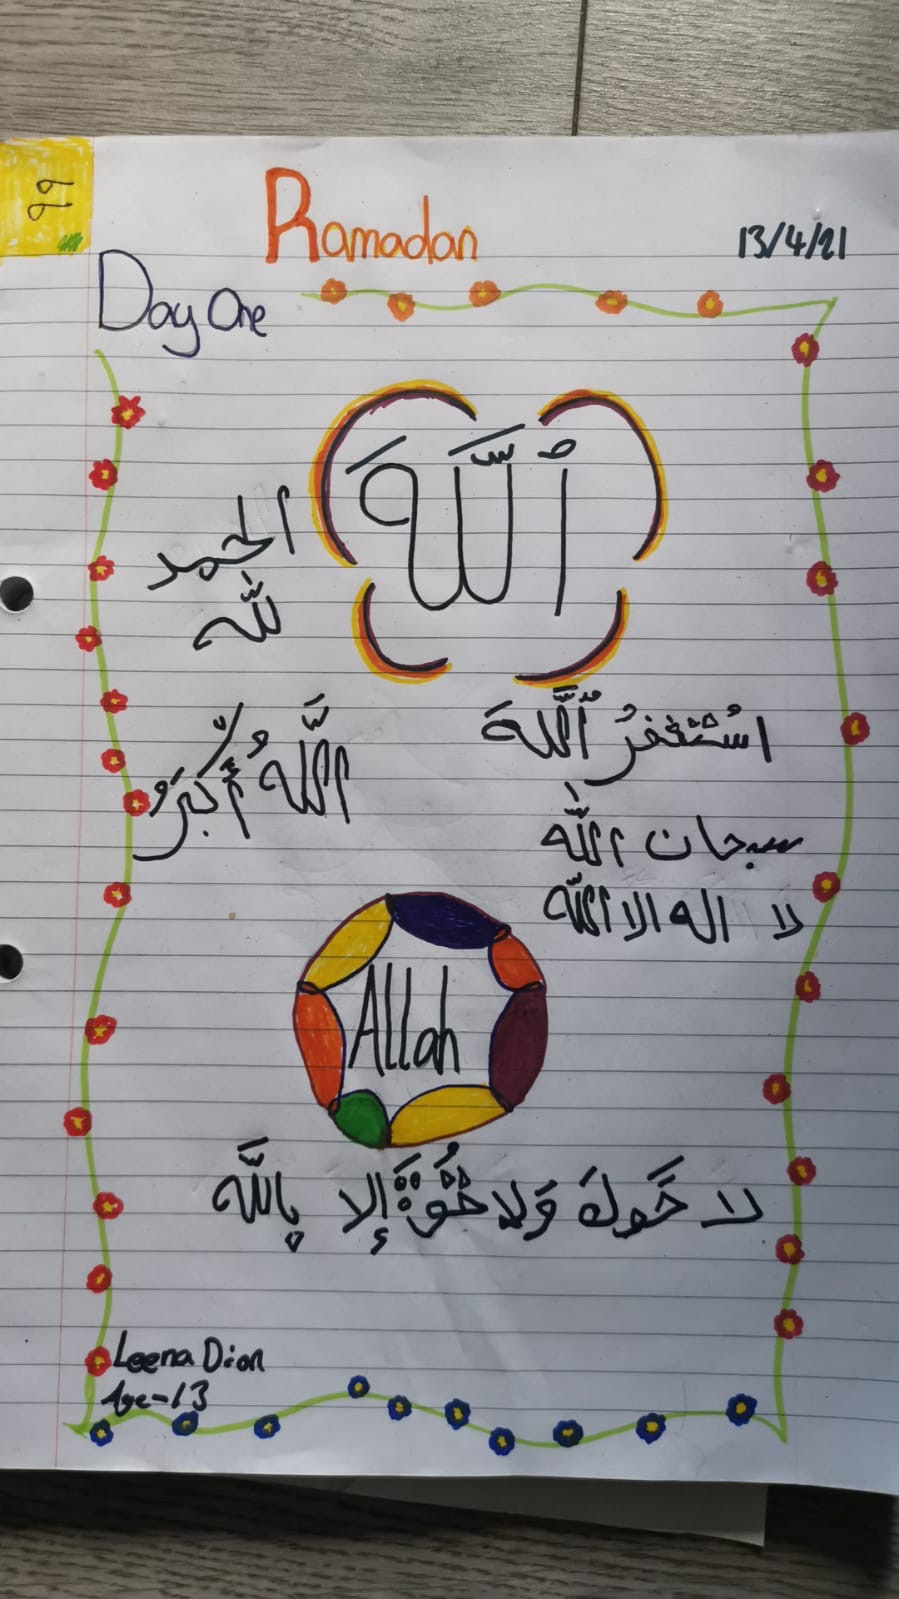 99
Ramadan
13/4/21
Day One
ٱللَّهَ
الحمد
لله
اسْتَغْفِرُ ٱللَّهَ
اللَّهُ أَكْبَرُ
سبحان الله
لا اله الا الله
Allah
لا حَولَ وَلا قُوَّةَ إلا بِاللَّه
Leena Dion
Age-13